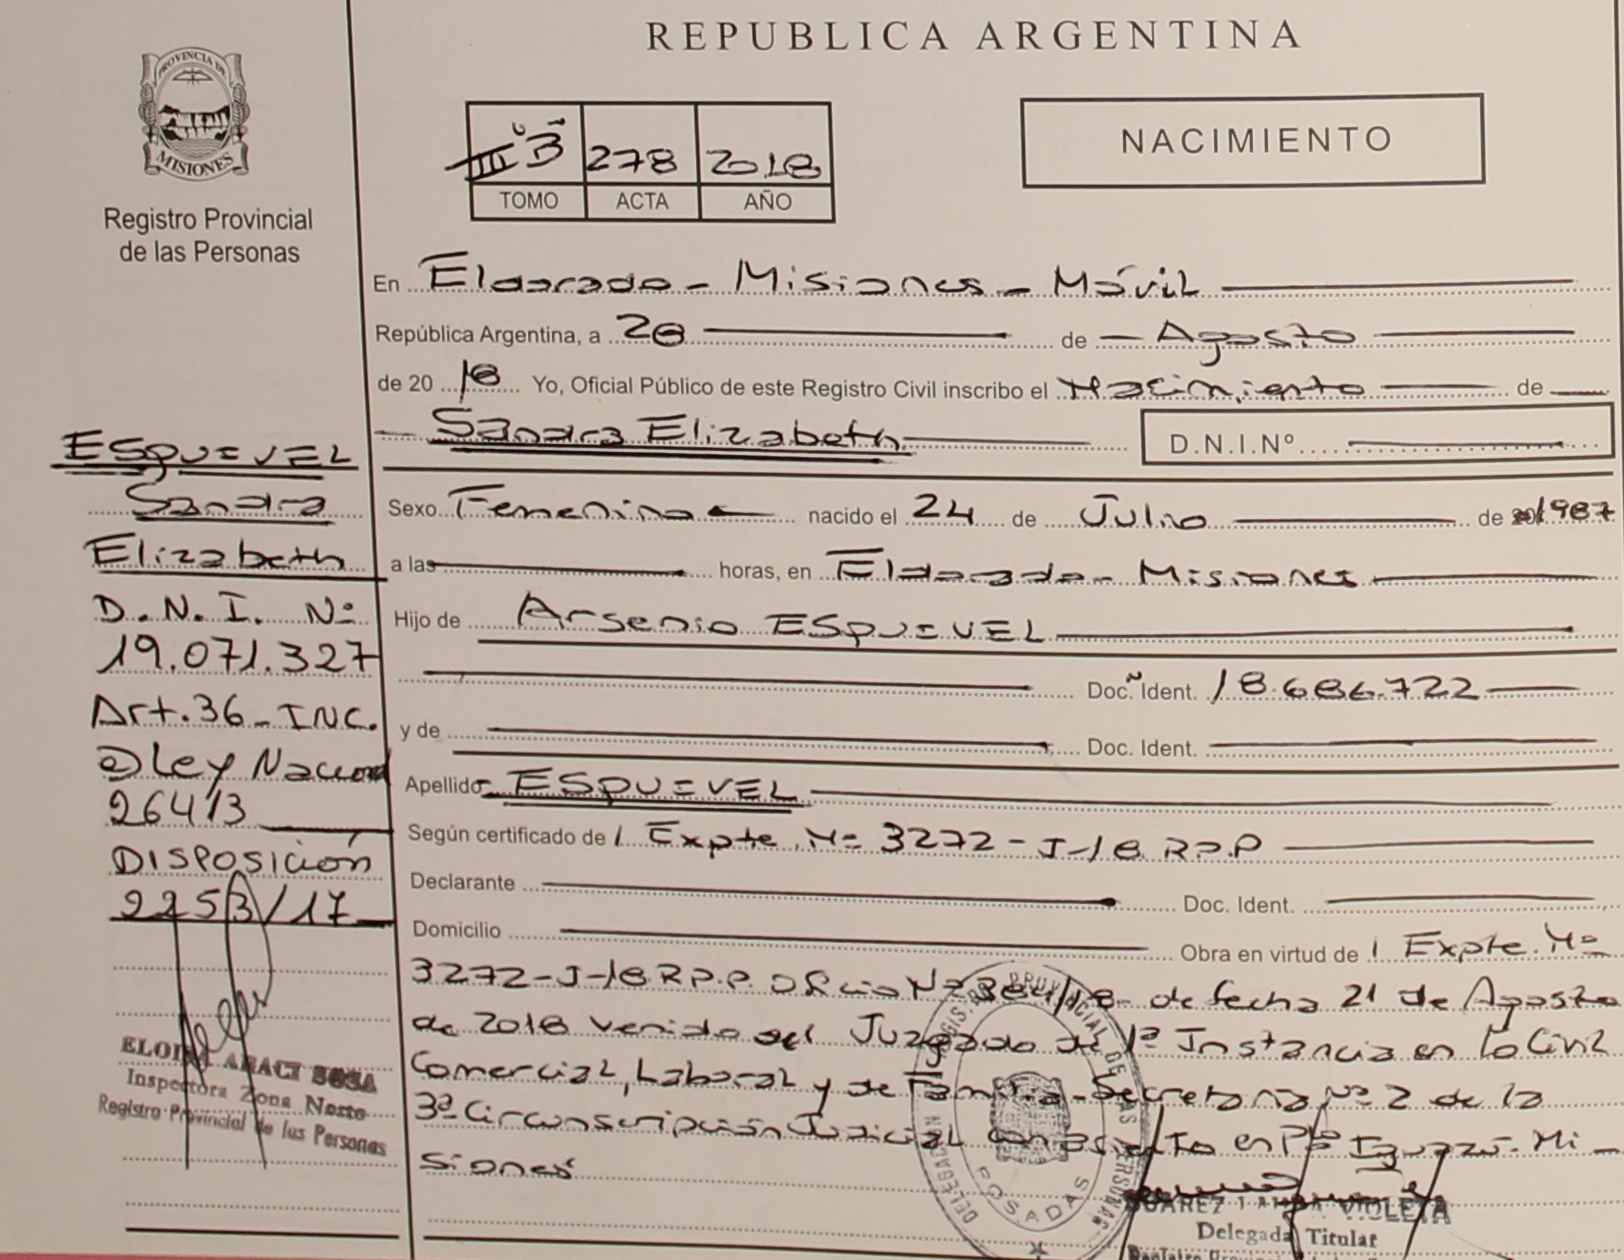 REPUBLICA ARGENTINA
PROVINCIA DE
MISIONES
Registro Provincial
de las Personas
III B 278 2018
TOMO ACTA AÑO
NACIMIENTO
En Eldorado - Misiones - Móvil
República Argentina, a 28 de Agosto
de 20 18 Yo, Oficial Público de este Registro Civil inscribo el Nacimiento de
Sandra Elizabeth D.N.I.Nº
Sexo Femenino nacido el 24 de Julio de 1987
a las horas, en Eldorado - Misiones
Hijo de Arsenio ESQUIVEL
Doc. Ident. 18.686.722
y de Doc. Ident.
Apellido ESQUIVEL
Según certificado de Expte. Nº 3272-J-18 R.P.P
Declarante Doc. Ident.
Domicilio Obra en virtud de Expte. Nº
3272-J-18 R.P.P. Oficio Nº 384/18 de fecha 21 de Agosto
de 2018 venido del Juzgado de 1ª Instancia en lo Civil
Comercial, Laboral y de Familia - Secretaria Nº 2 de la
3ª Circunscripción Judicial con asiento en Pto Iguazú - Mi
siones
ESQUIVEL
Sandra
Elizabeth
D.N.I. Nº
19.071.327
Art. 36 - INC.
a) Ley Nacional
26413
DISPOSICIÓN
2253/17
ARACI SOSA
Inspectora Zona Norte
Registro Provincial de las Personas
POSADAS
SUAREZ VIOLETA
Delegada Titular